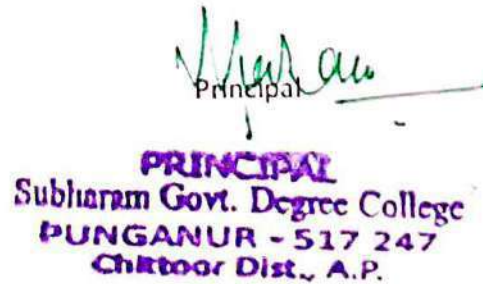 Principal
PRINCIPAL
Subharam Govt. Degree College
PUNGANUR - 517 247
Chittoor Dist., A.P.